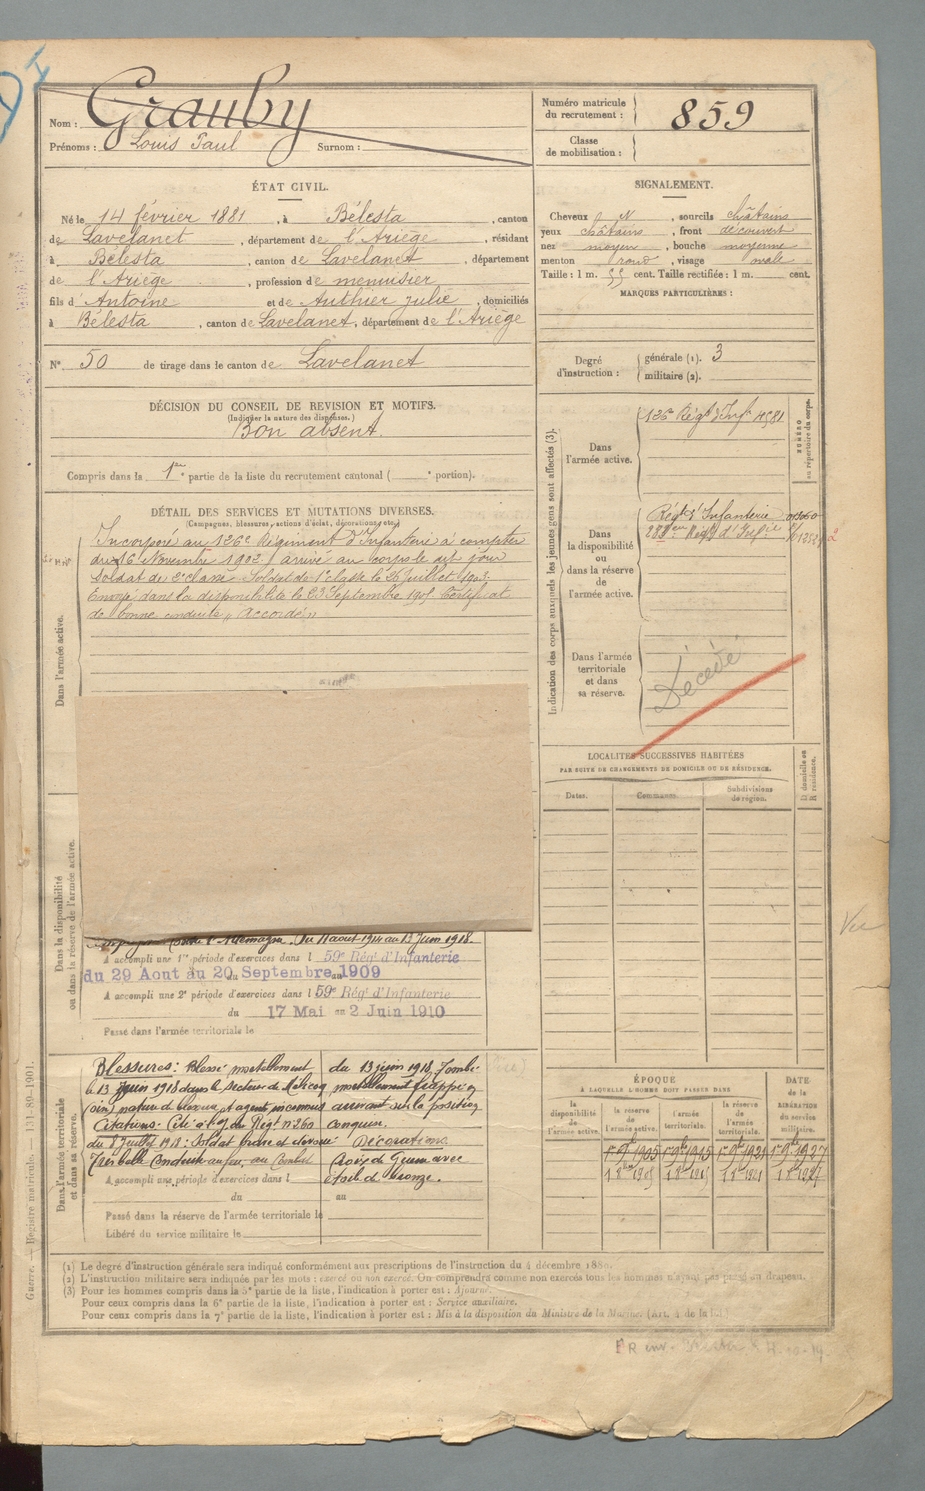 Nom : Grauby
Prénoms : Louis Paul Surnom :
Numéro matricule du recrutement : 859
Classe de mobilisation :
ÉTAT CIVIL.
Né le 14 février 1881, à Bélesta, canton
de Lavelanet, département de l'Ariège, résidant
à Bélesta, canton de Lavelanet, département
de l'Ariège, profession de menuisier
fils d'Antoine et de Authier Julie, domiciliés
à Bélesta, canton de Lavelanet, département de l'Ariège
N° 50 de tirage dans le canton de Lavelanet
DÉCISION DU CONSEIL DE REVISION ET MOTIFS.
(Indiquer la nature des dispenses.)
Bon absent.
Compris dans la 1re partie de la liste du recrutement cantonal ( e portion).
SIGNALEMENT.
Cheveux N, sourcils châtains
yeux châtains, front découvert
nez moyen, bouche moyenne
menton rond, visage ovale
Taille : 1 m. 55 cent. Taille rectifiée : 1 m. cent.
MARQUES PARTICULIÈRES :
Degré d'instruction : générale (1). 3
militaire (2).
DÉTAIL DES SERVICES ET MUTATIONS DIVERSES.
(Campagnes, blessures, actions d'éclat, décorations, etc.)
Incorporé au 126e Régiment d'Infanterie à compter
du 16 Novembre 1902, arrivé au corps le dit jour
Soldat de 2e classe. Soldat de 1e classe le 26 juillet 1903.
Envoyé dans la disponibilité le 23 Septembre 1905. Certificat
de bonne conduite "Accordé"
Dans l'armée active.
Indication des corps auxquels les jeunes gens sont affectés (3).
Dans l'armée active.
126e Régt d'Infie
NUMÉRO au répertoire du corps.
Dans la disponibilité ou dans la réserve de l'armée active.
Régt d'Infanterie
Régt d'Infie
Dans l'armée territoriale et dans sa réserve.
Décédé
LOCALITÉS SUCCESSIVES HABITÉES
PAR SUITE DE CHANGEMENTS DE DOMICILE OU DE RÉSIDENCE.
Dates. Communes. Subdivisions de région. D domicile ou R résidence.
Dans la disponibilité ou dans la réserve de l'armée active.
contre l'Allemagne. Du 11 aout 1914 au 13 Juin 1918.
A accompli une 1re période d'exercices dans l 59e Régt d'Infanterie
du 29 Aout au 20 Septembre 1909
A accompli une 2e période d'exercices dans l 59e Régt d'Infanterie
du 17 Mai au 2 Juin 1910
Passé dans l'armée territoriale le
Vu
Dans l'armée territoriale et dans sa réserve.
Blessures : Blessé mortellement
le 13 juin 1918 dans le secteur de
nature de blessure et agent inconnus
Citations. Cité à l'O/ du Régt n° 260
du 8 Juillet 1918 : Soldat brave et dévoué
Très belle conduite au feu, au Combat
du 13 juin 1918. Tombé
mortellement frappé en
arrivant sur la position
conquise.
Décorations
Croix de Guerre avec
étoile de bronze.
A accompli une période d'exercices dans l
du au
Passé dans la réserve de l'armée territoriale le
Libéré du service militaire le
ÉPOQUE
À LAQUELLE L'HOMME DOIT PASSER DANS
la disponibilité de l'armée active. la réserve de l'armée active. l'armée territoriale. la réserve de l'armée territoriale.
DATE de la LIBÉRATION du service militaire.
1905 1915 1921 1927
(1) Le degré d'instruction générale sera indiqué conformément aux prescriptions de l'instruction du 4 décembre 1889.
(2) L'instruction militaire sera indiquée par les mots : exercé ou non exercé. On comprendra comme non exercés tous les hommes n'ayant pas passé au drapeau.
(3) Pour les hommes compris dans la 5e partie de la liste, l'indication à porter est : Ajourné.
Pour ceux compris dans la 6e partie de la liste, l'indication à porter est : Service auxiliaire.
Pour ceux compris dans la 7e partie de la liste, l'indication à porter est : Mis à la disposition du Ministre de la Marine. (Art. 4 de la loi)
Guerre. — Registre matricule. 131-89-1901.